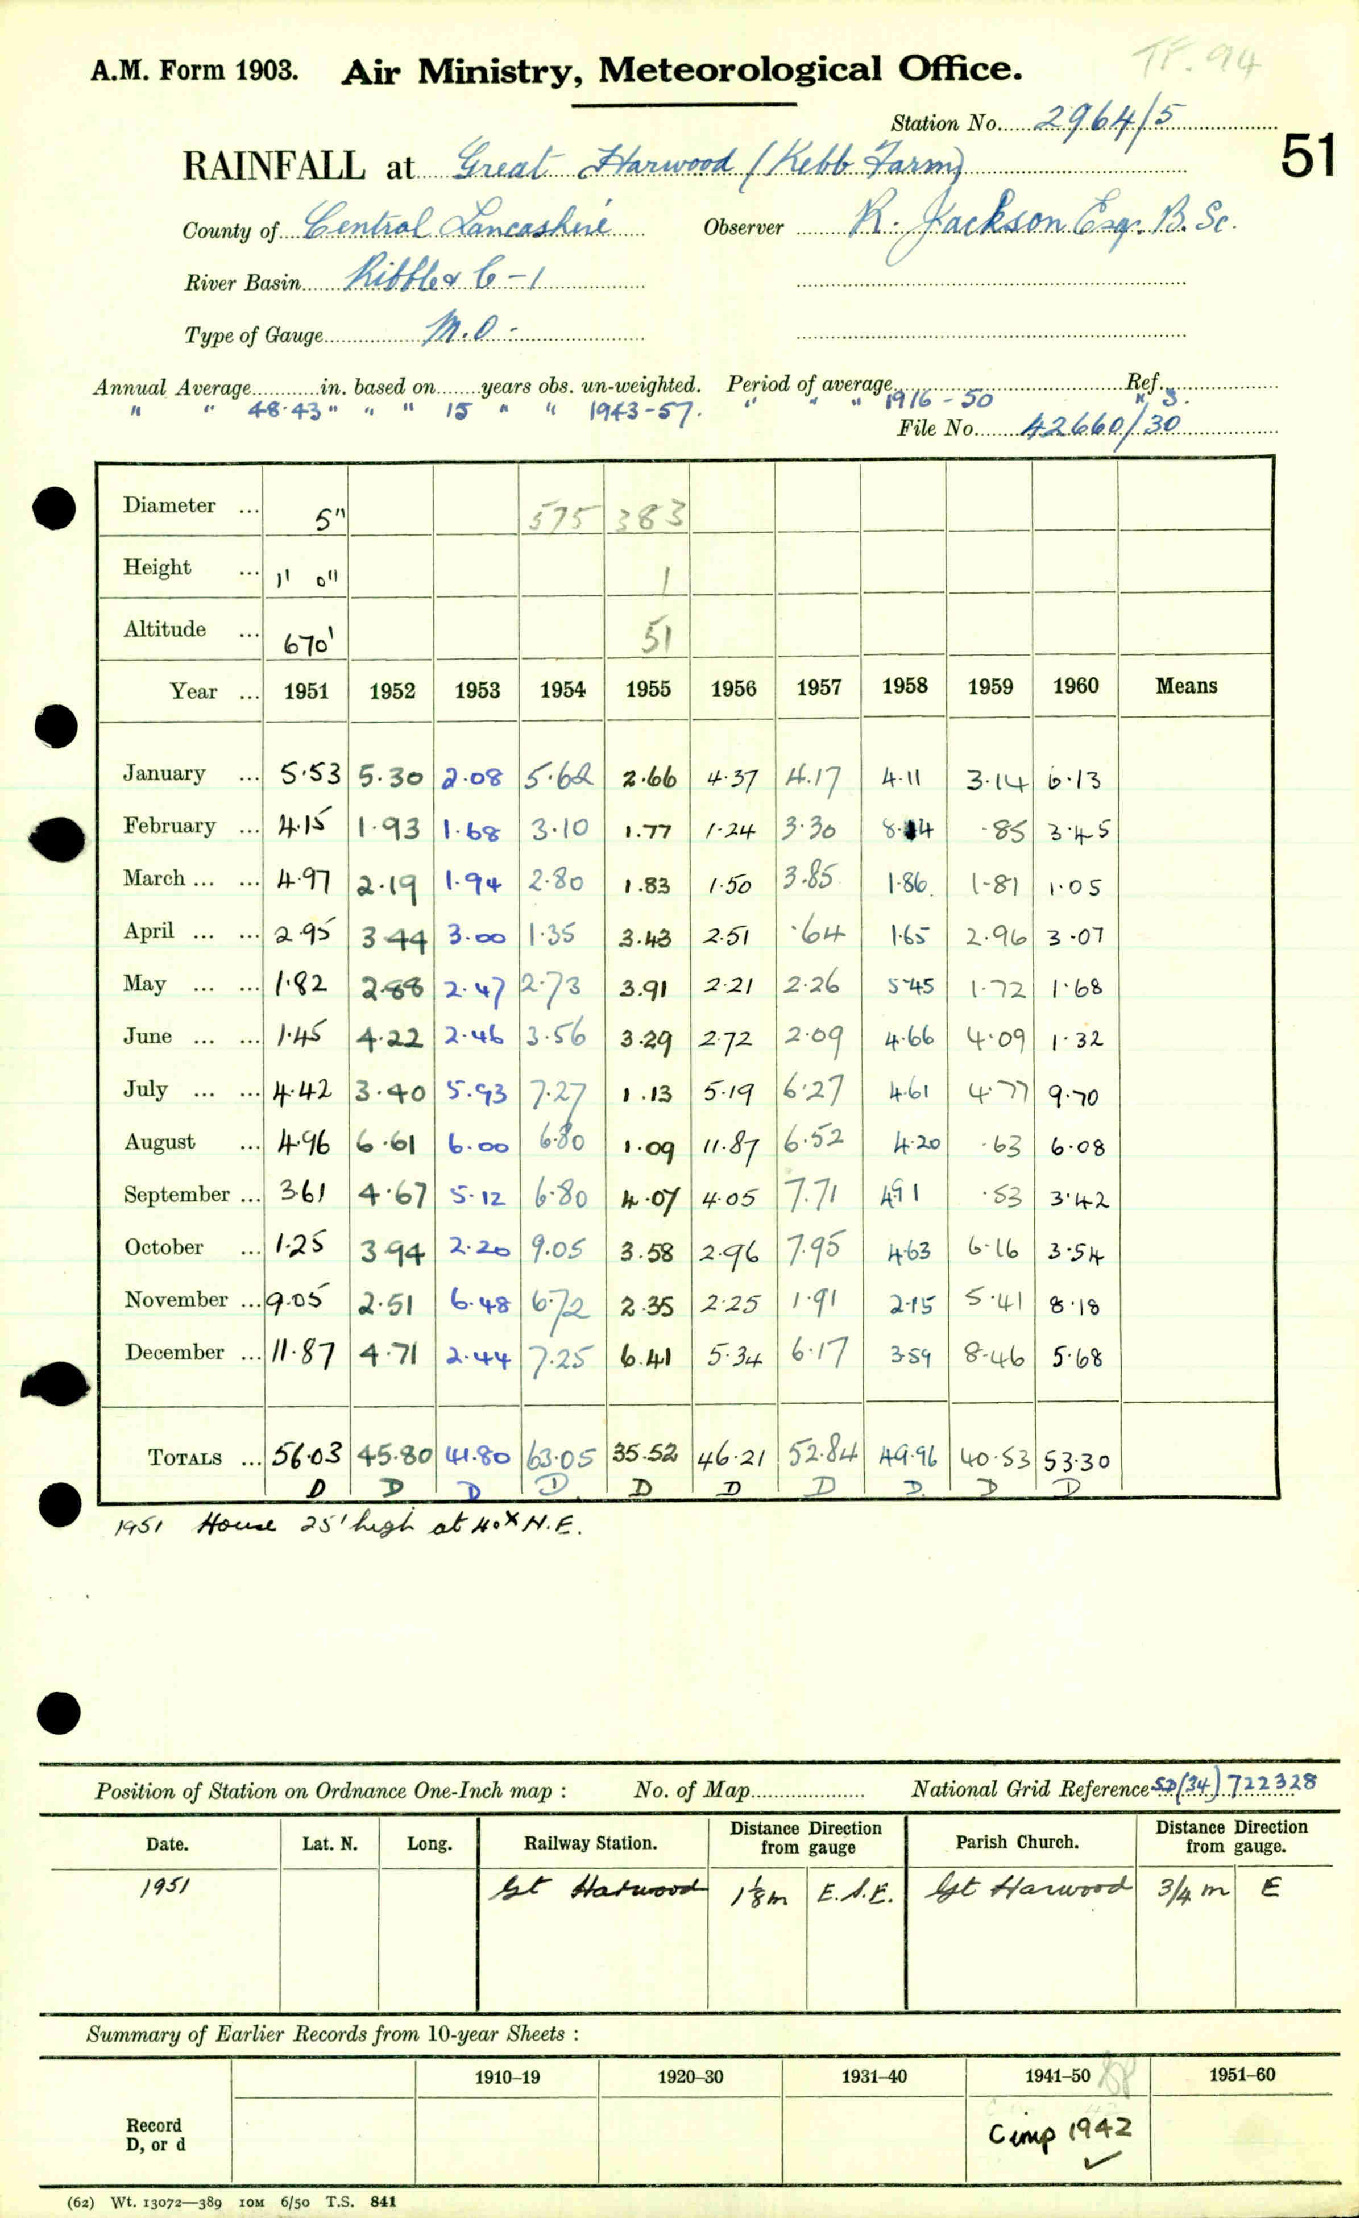 TF. 94
A.M. Form 1903. Air Ministry, Meteorological Office.
Station No. 2964/5
51
RAINFALL at Great Harwood (Kebb Farm)
County of Central Lancashire Observer R. Jackson Esq. B.Sc.
River Basin Ribble & C-1
Type of Gauge M.O.
Annual Average in. based on years obs. un-weighted. Period of average Ref.
" " 48.43 " " " 15 " " 1943-57. " " " 1916-50 " 3.
File No. 42660/30
Diameter ... 5" 575 383
Height ... 1' 0" 1
Altitude ... 670' 51
Year ... 1951 1952 1953 1954 1955 1956 1957 1958 1959 1960 Means
January ... 5.53 5.30 2.08 5.62 2.66 4.37 4.17 4.11 3.14 6.13
February ... 4.15 1.93 1.68 3.10 1.77 1.24 3.30 8.14 .85 3.45
March ... ... 4.97 2.19 1.94 2.80 1.83 1.50 3.85 1.86 1.81 1.05
April ... ... 2.95 3.44 3.00 1.35 3.43 2.51 .64 1.65 2.96 3.07
May ... ... 1.82 2.88 2.47 2.73 3.91 2.21 2.26 5.45 1.72 1.68
June ... ... 1.45 4.22 2.46 3.56 3.29 2.72 2.09 4.66 4.09 1.32
July ... ... 4.42 3.40 5.93 7.27 1.13 5.19 6.27 4.61 4.77 9.70
August ... 4.96 6.61 6.00 6.80 1.09 11.87 6.52 4.20 .63 6.08
September ... 3.61 4.67 5.12 6.80 4.07 4.05 7.71 4.91 .53 3.42
October ... 1.25 3.94 2.20 9.05 3.58 2.96 7.95 4.63 6.16 3.54
November ... 9.05 2.51 6.48 6.72 2.35 2.25 1.91 2.15 5.41 8.18
December ... 11.87 4.71 2.44 7.25 6.41 5.34 6.17 3.59 8.46 5.68
TOTALS ... 56.03 45.80 41.80 63.05 35.52 46.21 52.84 49.96 40.53 53.30
D D D D D D D D D D
1951 House 25' high at 40x N.E.
Position of Station on Ordnance One-Inch map : No. of Map National Grid Reference SD(34) 722328
Date. Lat. N. Long. Railway Station. Distance Direction from gauge Parish Church. Distance Direction from gauge.
1951 Gt Harwood 1⅛m E.S.E. Gt Harwood 3/4 m E
Summary of Earlier Records from 10-year Sheets :
1910–19 1920–30 1931–40 1941–50 1951–60
Record
D, or d
Comp 1942
(62) Wt. 13072—389 10M 6/50 T.S. 841